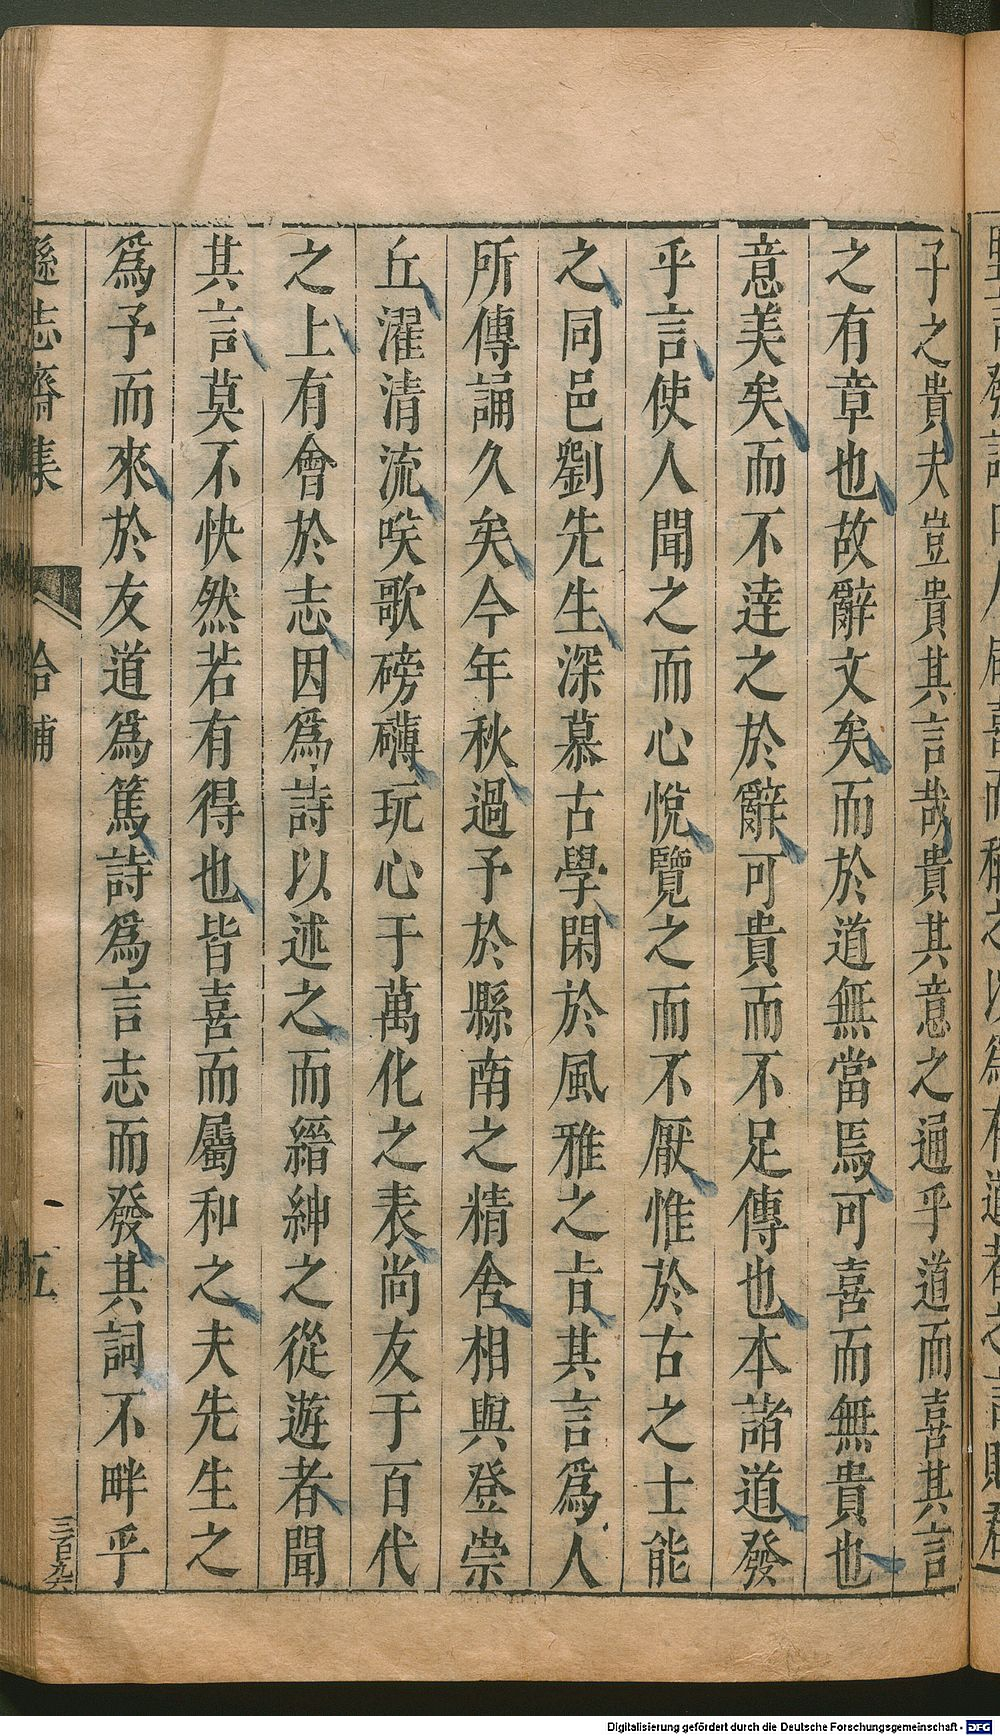 子之貴夫豈貴其言哉貴其意之通乎道而喜其言
之有章也故辭文矣而於道無當焉可喜而無貴也
意美矣而不達之於辭可貴而不足傳也本諸道發
乎言使人聞之而心悅覽之而不厭惟於古之士能
之同邑劉先生深慕古學閑於風雅之旨其言爲人
所傳誦久矣今年秋過予於縣南之精舍相與登崇
丘濯清流唉歌磅礴玩心于萬化之表尚友于百代
之上有會於志因爲詩以述之而縉紳之從遊者聞
其言莫不快然若有得也皆喜而屬和之夫先生之
爲予而來於友道爲篤詩爲言志而發其詞不畔乎
遜志齋集
拾補
五
三百九六
Digitalisierung gefördert durch die Deutsche Forschungsgemeinschaft - DFG